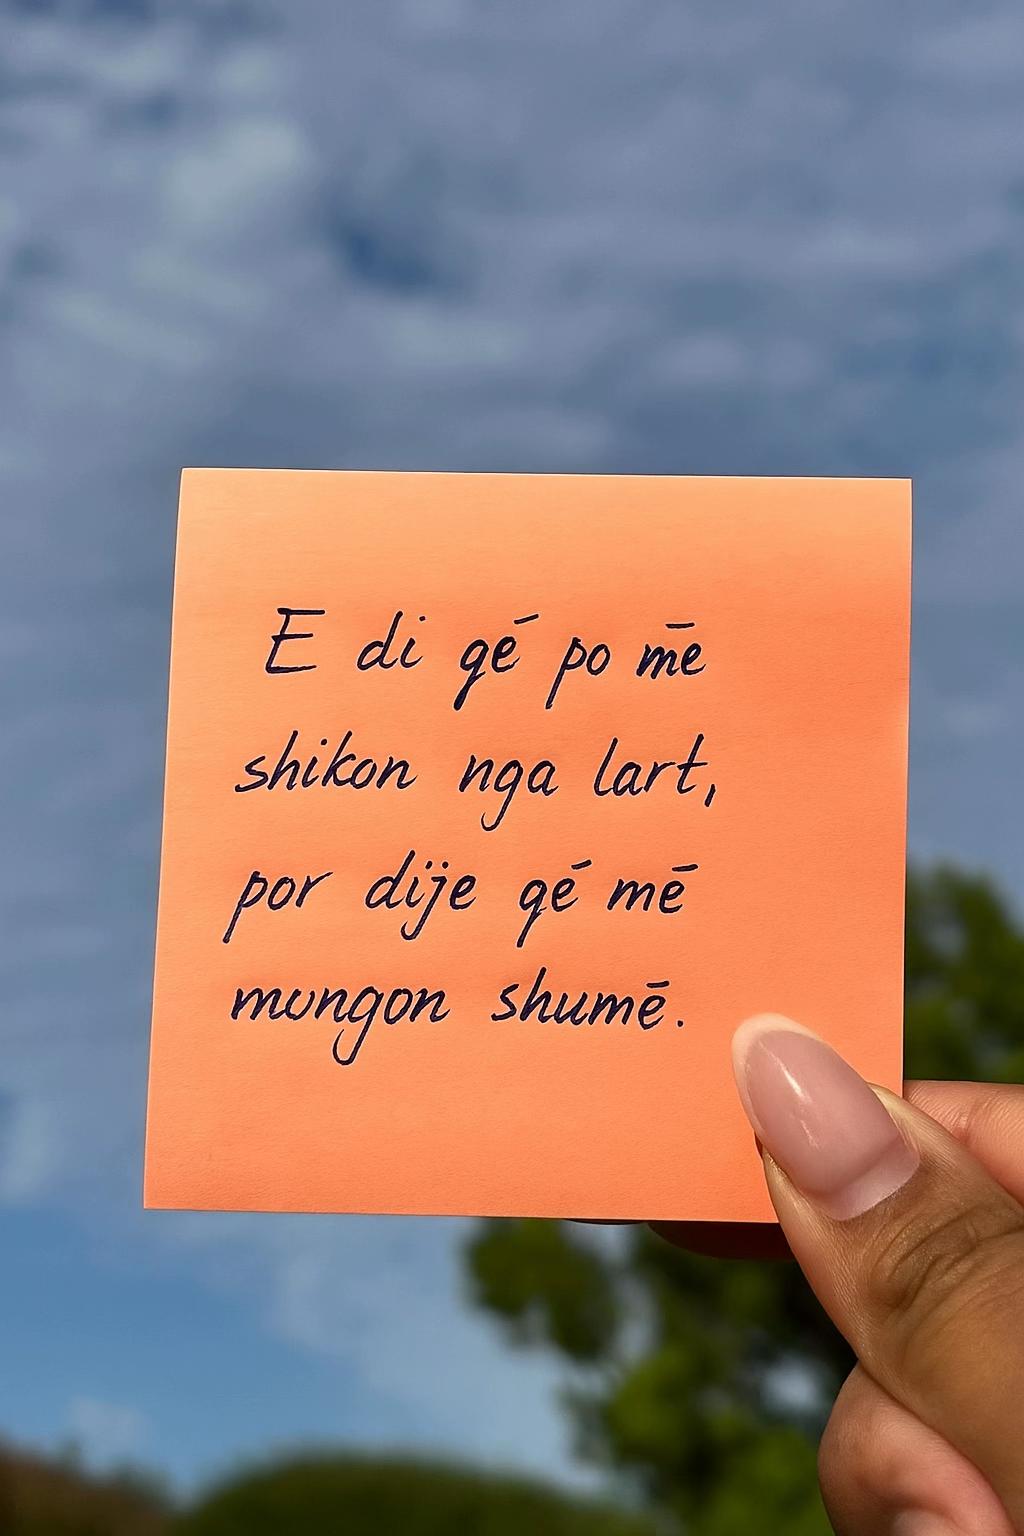 E di qé po mē
shikon nga lart,
por dije qé mē
mungon shumē.